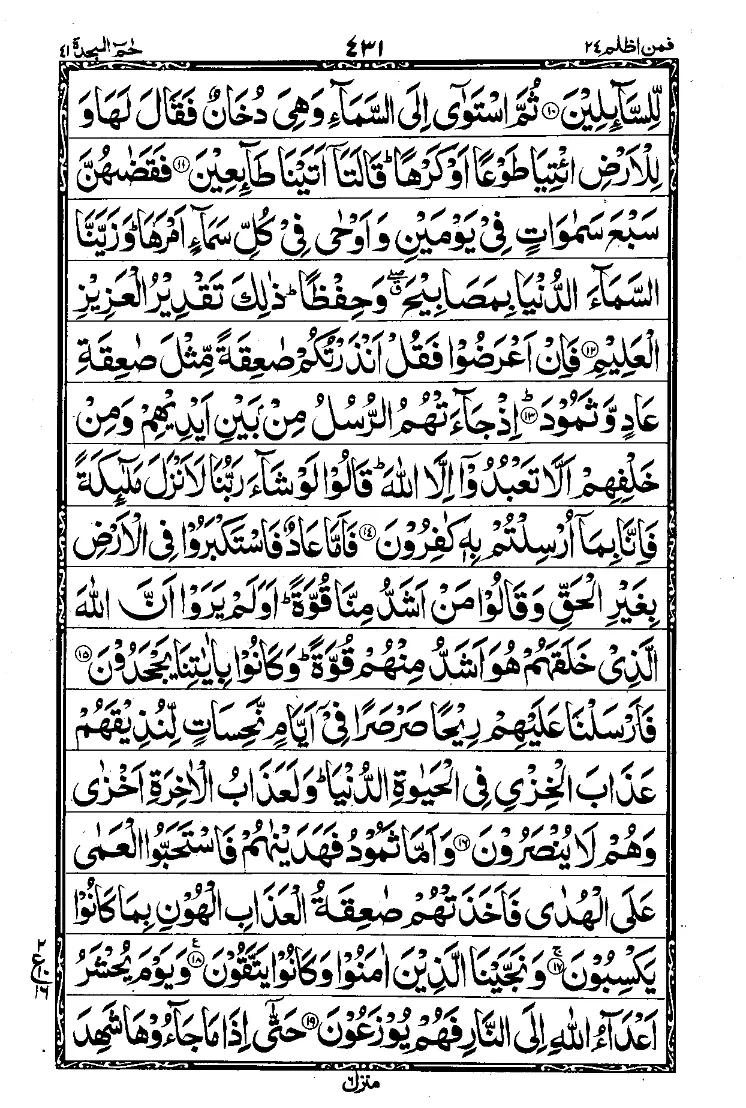 فمن اظلم ٢٤
٤٣١
حٰمٓ السجدة ٤١
لِّلسَّآئِلِيْنَ ۝١٠ ثُمَّ اسْتَوٰٓى اِلَى السَّمَآءِ وَهِىَ دُخَانٌ فَقَالَ لَهَا وَ
لِلْاَرْضِ ائْتِيَا طَوْعًا اَوْ كَرْهًا ؕ قَالَتَآ اَتَيْنَا طَآئِعِيْنَ ۝١١ فَقَضٰىهُنَّ
سَبْعَ سَمٰوَاتٍ فِىْ يَوْمَيْنِ وَ اَوْحٰى فِىْ كُلِّ سَمَآءٍ اَمْرَهَا ؕ وَ زَيَّنَّا
السَّمَآءَ الدُّنْيَا بِمَصَابِيْحَ ۖۗ وَحِفْظًا ؕ ذٰلِكَ تَقْدِيْرُ الْعَزِيْزِ
الْعَلِيْمِ ۝١٢ فَاِنْ اَعْرَضُوْا فَقُلْ اَنْذَرْتُكُمْ صٰعِقَةً مِّثْلَ صٰعِقَةِ
عَادٍ وَّ ثَمُوْدَ ۝١٣ؕ اِذْ جَآءَتْهُمُ الرُّسُلُ مِنْۢ بَيْنِ اَيْدِيْهِمْ وَمِنْ
خَلْفِهِمْ اَلَّا تَعْبُدُوْٓا اِلَّا اللّٰهَ ؕ قَالُوْا لَوْ شَآءَ رَبُّنَا لَاَنْزَلَ مَلٰٓئِكَةً
فَاِنَّا بِمَآ اُرْسِلْتُمْ بِهٖ كٰفِرُوْنَ ۝١٤ فَاَمَّا عَادٌ فَاسْتَكْبَرُوْا فِى الْاَرْضِ
بِغَيْرِ الْحَقِّ وَقَالُوْا مَنْ اَشَدُّ مِنَّا قُوَّةً ؕ اَوَلَمْ يَرَوْا اَنَّ اللّٰهَ
الَّذِىْ خَلَقَهُمْ هُوَ اَشَدُّ مِنْهُمْ قُوَّةً ؕ وَكَانُوْا بِاٰيٰتِنَا يَجْحَدُوْنَ ۝١٥
فَاَرْسَلْنَا عَلَيْهِمْ رِيْحًا صَرْصَرًا فِىْٓ اَيَّامٍ نَّحِسَاتٍ لِّنُذِيْقَهُمْ
عَذَابَ الْخِزْىِ فِى الْحَيٰوةِ الدُّنْيَا ؕ وَلَعَذَابُ الْاٰخِرَةِ اَخْزٰى
وَهُمْ لَا يُنْصَرُوْنَ ۝١٦ وَ اَمَّا ثَمُوْدُ فَهَدَيْنٰهُمْ فَاسْتَحَبُّوا الْعَمٰى
عَلَى الْهُدٰى فَاَخَذَتْهُمْ صٰعِقَةُ الْعَذَابِ الْهُوْنِ بِمَا كَانُوْا
يَكْسِبُوْنَ ۝١٧ۚ وَ نَجَّيْنَا الَّذِيْنَ اٰمَنُوْا وَكَانُوْا يَتَّقُوْنَ ۝١٨ع وَيَوْمَ يُحْشَرُ
٢
ع
١٠
١٦
اَعْدَآءُ اللّٰهِ اِلَى النَّارِ فَهُمْ يُوْزَعُوْنَ ۝١٩ حَتّٰٓى اِذَا مَا جَآءُوْهَا شَهِدَ
منزل ٦